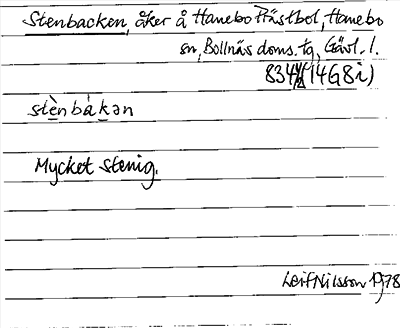 Stenbacken, åker å Hanebo Prästbol, Hanebo
sn, Bollnäs doms. tg, Gävl. l.
(14G8i)
stènbákən
Mycket stenig.
Leif Nilsson 1978